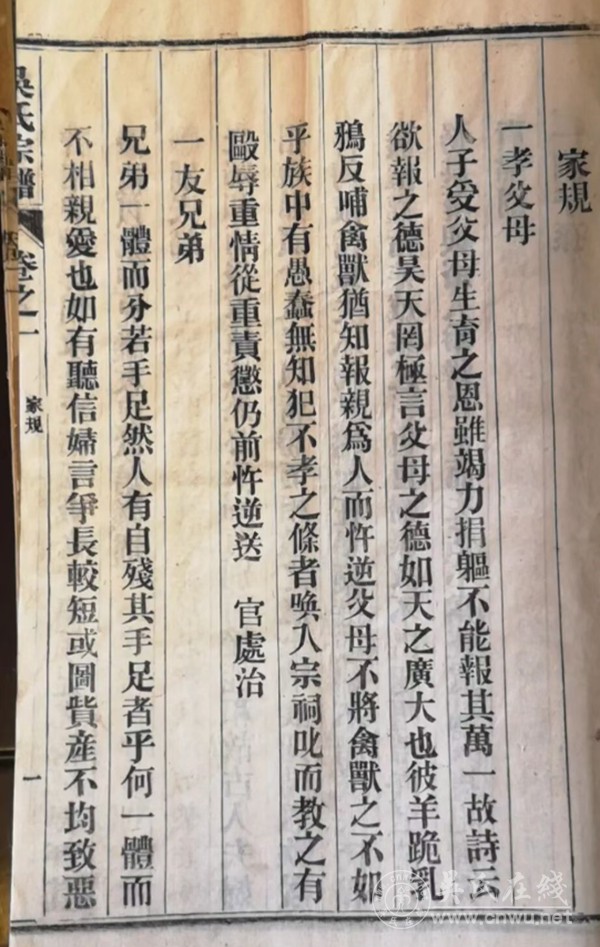 家規
一孝父母
人子受父母生育之恩雖竭力捐軀不能報其萬一故詩云
欲報之德昊天罔極言父母之德如天之廣大也彼羊跪乳
鴉反哺禽獸猶知報親爲人而忤逆父母不將禽獸之不如
乎族中有愚蠢無知犯不孝之條者喚入宗祠叱而教之有
毆辱重情從重責懲仍前忤逆送　官處治
一友兄弟
兄弟一體而分若手足然人有自殘其手足者乎何一體而
不相親愛也如有聽信婦言爭長較短或圖貲産不均致惡
吳氏宗譜
卷之一
家規
一
吴氏在线
www.cnwu.net